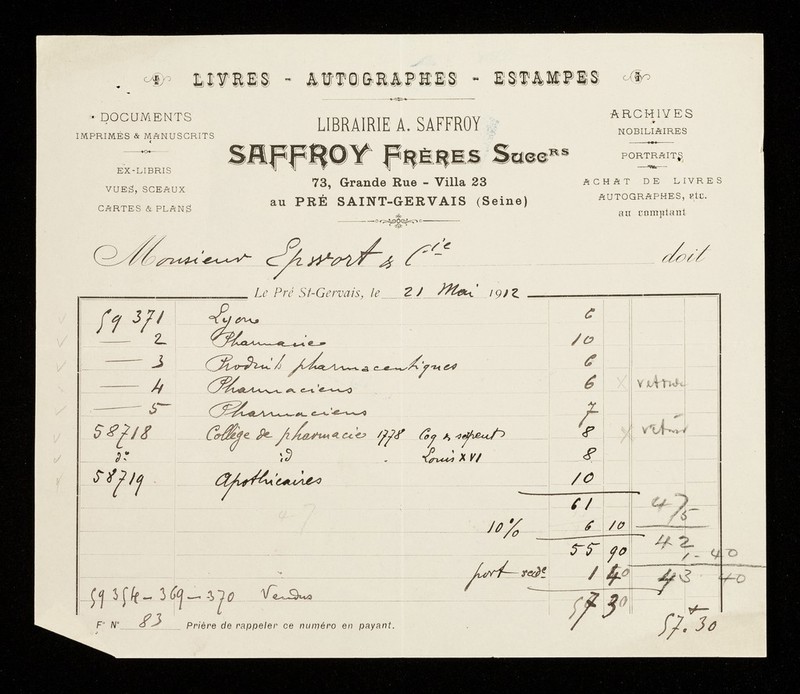 LIVRES - AUTOGRAPHES - ESTAMPES
DOCUMENTS
IMPRIMÉS & MANUSCRITS
EX-LIBRIS
VUES, SCEAUX
CARTES & PLANS
LIBRAIRIE A. SAFFROY
SAFFROY FRÈRES SuccRS
73, Grande Rue - Villa 23
au PRÉ SAINT-GERVAIS (Seine)
ARCHIVES
NOBILIAIRES
PORTRAITS
ACHAT DE LIVRES
AUTOGRAPHES, etc.
au comptant
Monsieur & Cie doit
Le Pré St-Gervais, le 21 Mai 1912
59 371 Lyon 6
— 2 Pharmacie 10
— 3 Produits pharmaceutiques 6
— 4 Pharmaciens 6 x retour
— 5 Pharmaciens 7
58718 Collège de pharmacie 1778 Coq & serpent 8 x retour
do id Louis XVI 8
58719 Apothicaires 10
61 47
10% 6 10 5
55 90 42
1-40
port 1 40 43 40
57 30
59 354 - 369 - 370 Vendus
57.30
Fo No 83 Prière de rappeler ce numéro en payant.